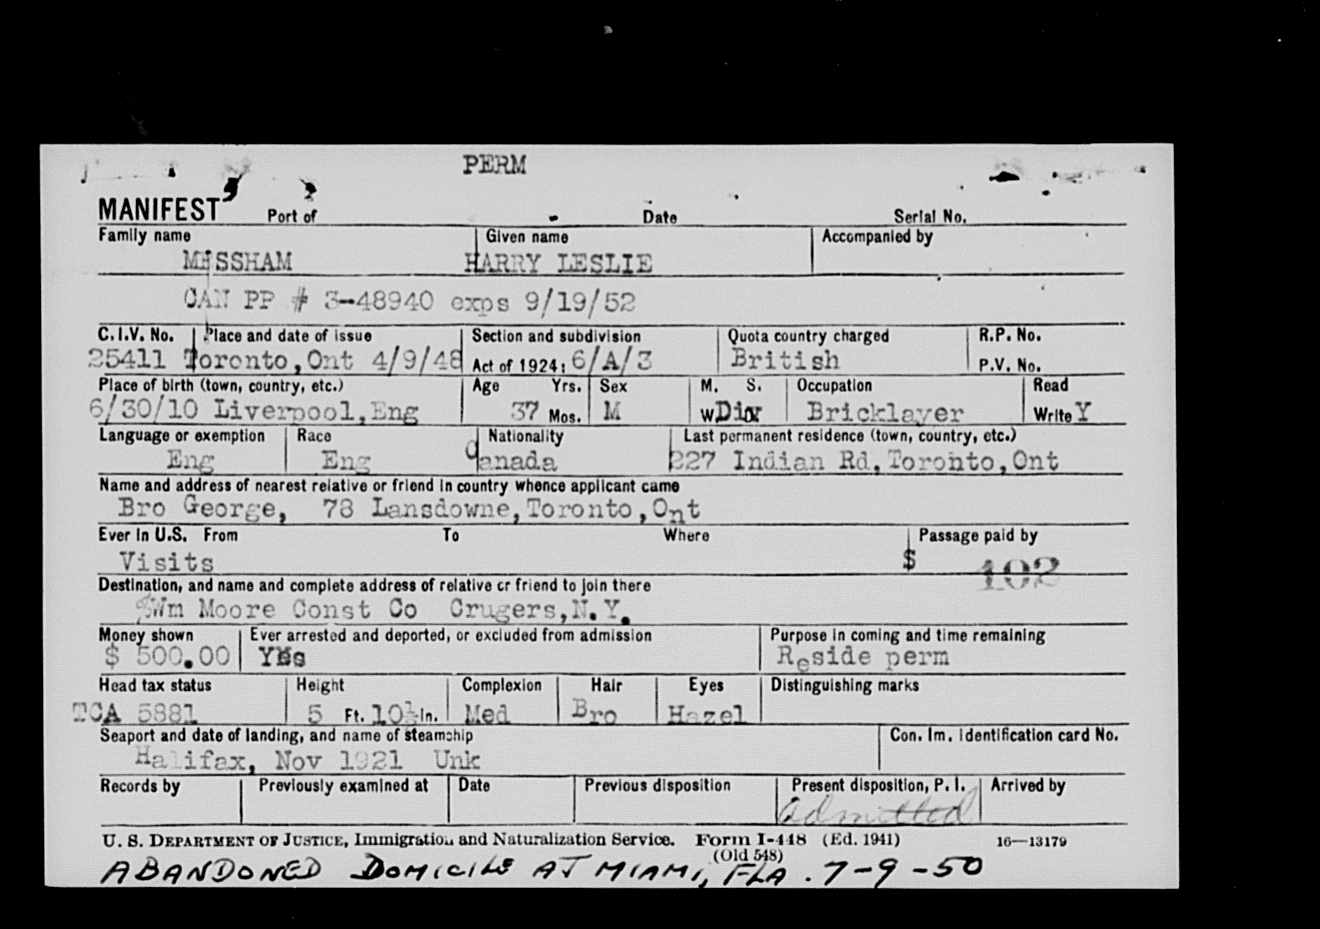 PERM
MANIFEST Port of Date Serial No.
Family name Given name Accompanied by
MESSHAM HARRY LESLIE
CAN PP # 3-48940 exps 9/19/52
C.I.V. No. Place and date of issue Section and subdivision Quota country charged R.P. No.
25411 Toronto,Ont 4/9/48 Act of 1924: 6/A/3 British P.V. No.
Place of birth (town, country, etc.) Age Yrs. Sex M. S. Occupation Read
6/30/10 Liverpool,Eng 37 Mos. M W Div Bricklayer Write Y
Language or exemption Race Nationality Last permanent residence (town, country, etc.)
Eng Eng Canada 227 Indian Rd,Toronto,Ont
Name and address of nearest relative or friend in country whence applicant came
Bro George, 78 Lansdowne,Toronto,Ont
Ever in U.S. From To Where Passage paid by
Visits $ 102
Destination, and name and complete address of relative or friend to join there
Wm Moore Const Co Crugers,N.Y.
Money shown Ever arrested and deported, or excluded from admission Purpose in coming and time remaining
$ 500.00 Reside perm
Head tax status Height Complexion Hair Eyes Distinguishing marks
TCA 5881 5 Ft. 10½ In. Med Bro Hazel
Seaport and date of landing, and name of steamship Con. Im. Identification card No.
Halifax, Nov 1921 Unk
Records by Previously examined at Date Previous disposition Present disposition, P. I. Arrived by
admitted
U. S. DEPARTMENT OF JUSTICE, Immigration and Naturalization Service. Form I-448 (Ed. 1941) 16—13179
(Old 548)
ABANDONED DOMICILE AT MIAMI, FLA. 7-9-50